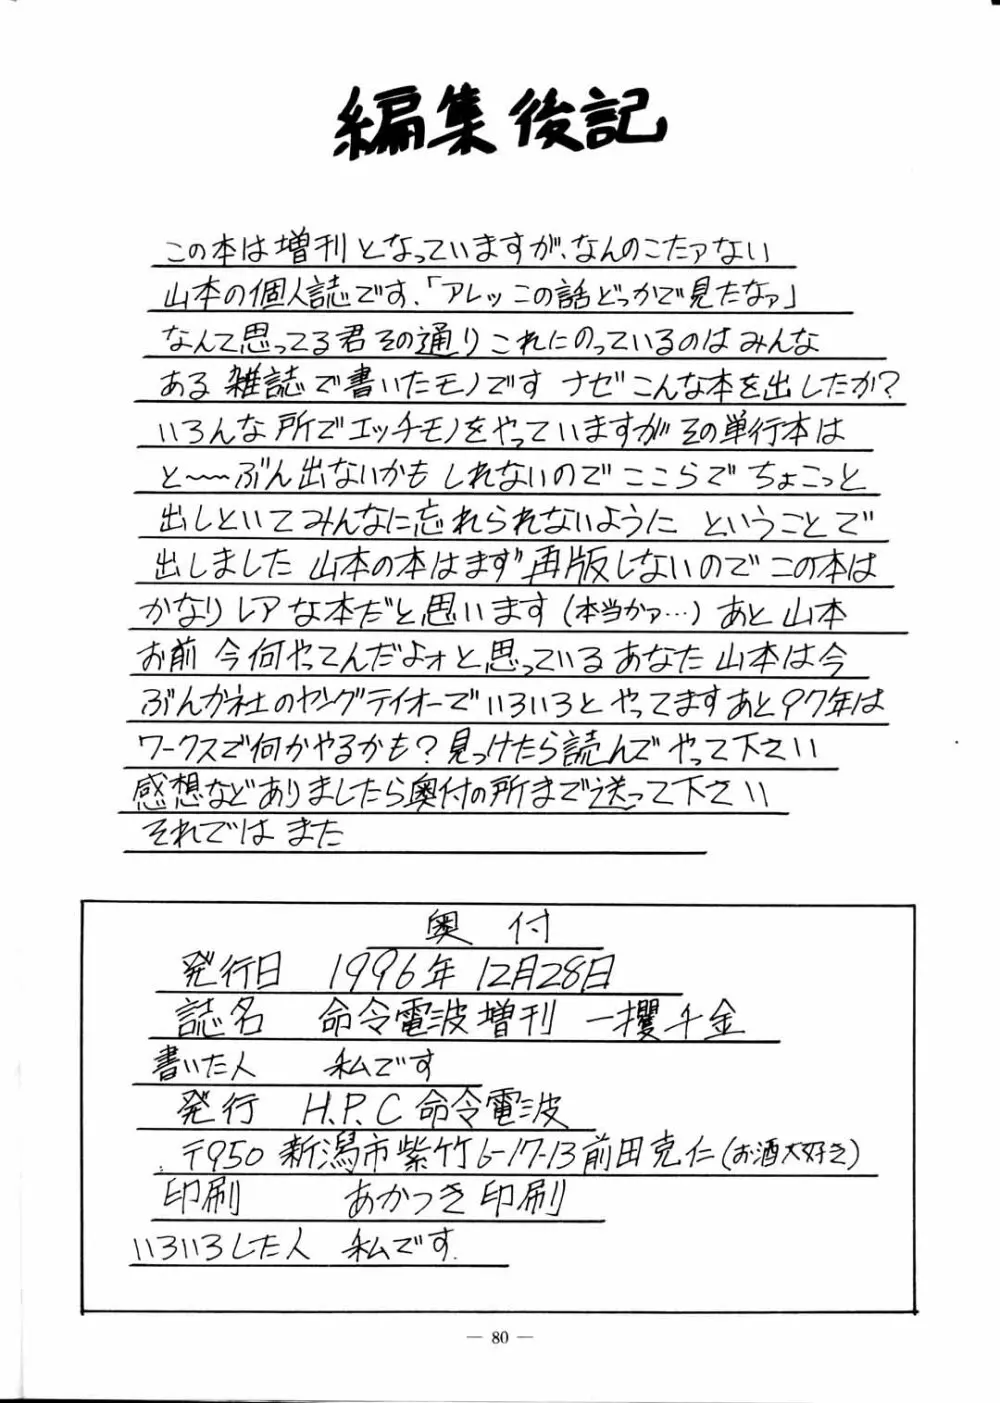 編集後記
この本は増刊となっていますが、なんのこたァない
山本の個人誌です、「アレッこの話どっかで見たなァ」
なんて思ってる君その通りこれにのっているのはみんな
ある雑誌で書いたモノです ナゼこんな本を出したか?
いろんな所でエッチモノをやっていますがその単行本は
と〜〜ぶん出ないかもしれないのでここらでちょこっと
出しといてみんなに忘れられないように ということで
出しました 山本の本はまず再版しないのでこの本は
かなりレアな本だと思います(本当かァ…)あと山本
お前今何やってんだよォと思っているあなた山本は今
ぶんか社のヤングテイオーでいろいろとやってますあと97年は
ワークスで何かやるかも?見つけたら読んでやって下さい
感想などありましたら奥付の所まで送って下さい
それでは また
奥 付
発行日 1996年12月28日
誌名 命令電波増刊 一攫千金
書いた人 私です
発行 H.P.C命令電波
〒950 新潟市紫竹6-17-13前田克仁(お酒大好き)
印刷 あかつき印刷
いろいろした人 私です.
— 80 —